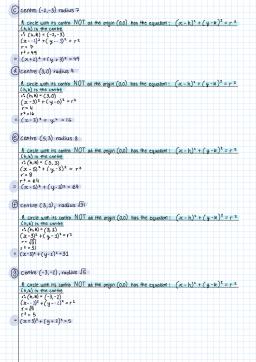 ⓒ centre (-2,-3) radius 7
A circle with its centre NOT at the origin (0,0) has the equation: (x-h)² + (y-k)² = r²
(h,k) is the centre
∴ (h,k) = (-2,-3)
r = 7
r² = 49
= (x+2)² + (y+3)² = 49
ⓓ centre (3,0) radius 4
A circle with its centre NOT at the origin (0,0) has the equation: (x-h)² + (y-k)² = r²
(h,k) is the centre
∴ (h,k) = (3,0)
(x-3)² + (y-0)² = r²
r = 4
r² = 16
= (x-3)² + y² = 16
ⓔ centre (5,3) radius 8
A circle with its centre NOT at the origin (0,0) has the equation: (x-h)² + (y-k)² = r²
(h,k) is the centre
∴ (h,k) = (5,3)
(x-5)² + (y-3)² = r²
r = 8
r² = 64
= (x-5)² + (y-3)² = 64
ⓕ centre (3,2), radius √31
A circle with its centre NOT at the origin (0,0) has the equation: (x-h)² + (y-k)² = r²
(h,k) is the centre
r = √31
r² = 31
ⓖ centre (-3,-2), radius √5
A circle with its centre NOT at the origin (0,0) has the equation: (x-h)² + (y-k)² = r²
(h,k) is the centre
∴ (h,k) = (-3,-2)
r = √5
r² = 5
= (x+3)² + (y+2)² = 5